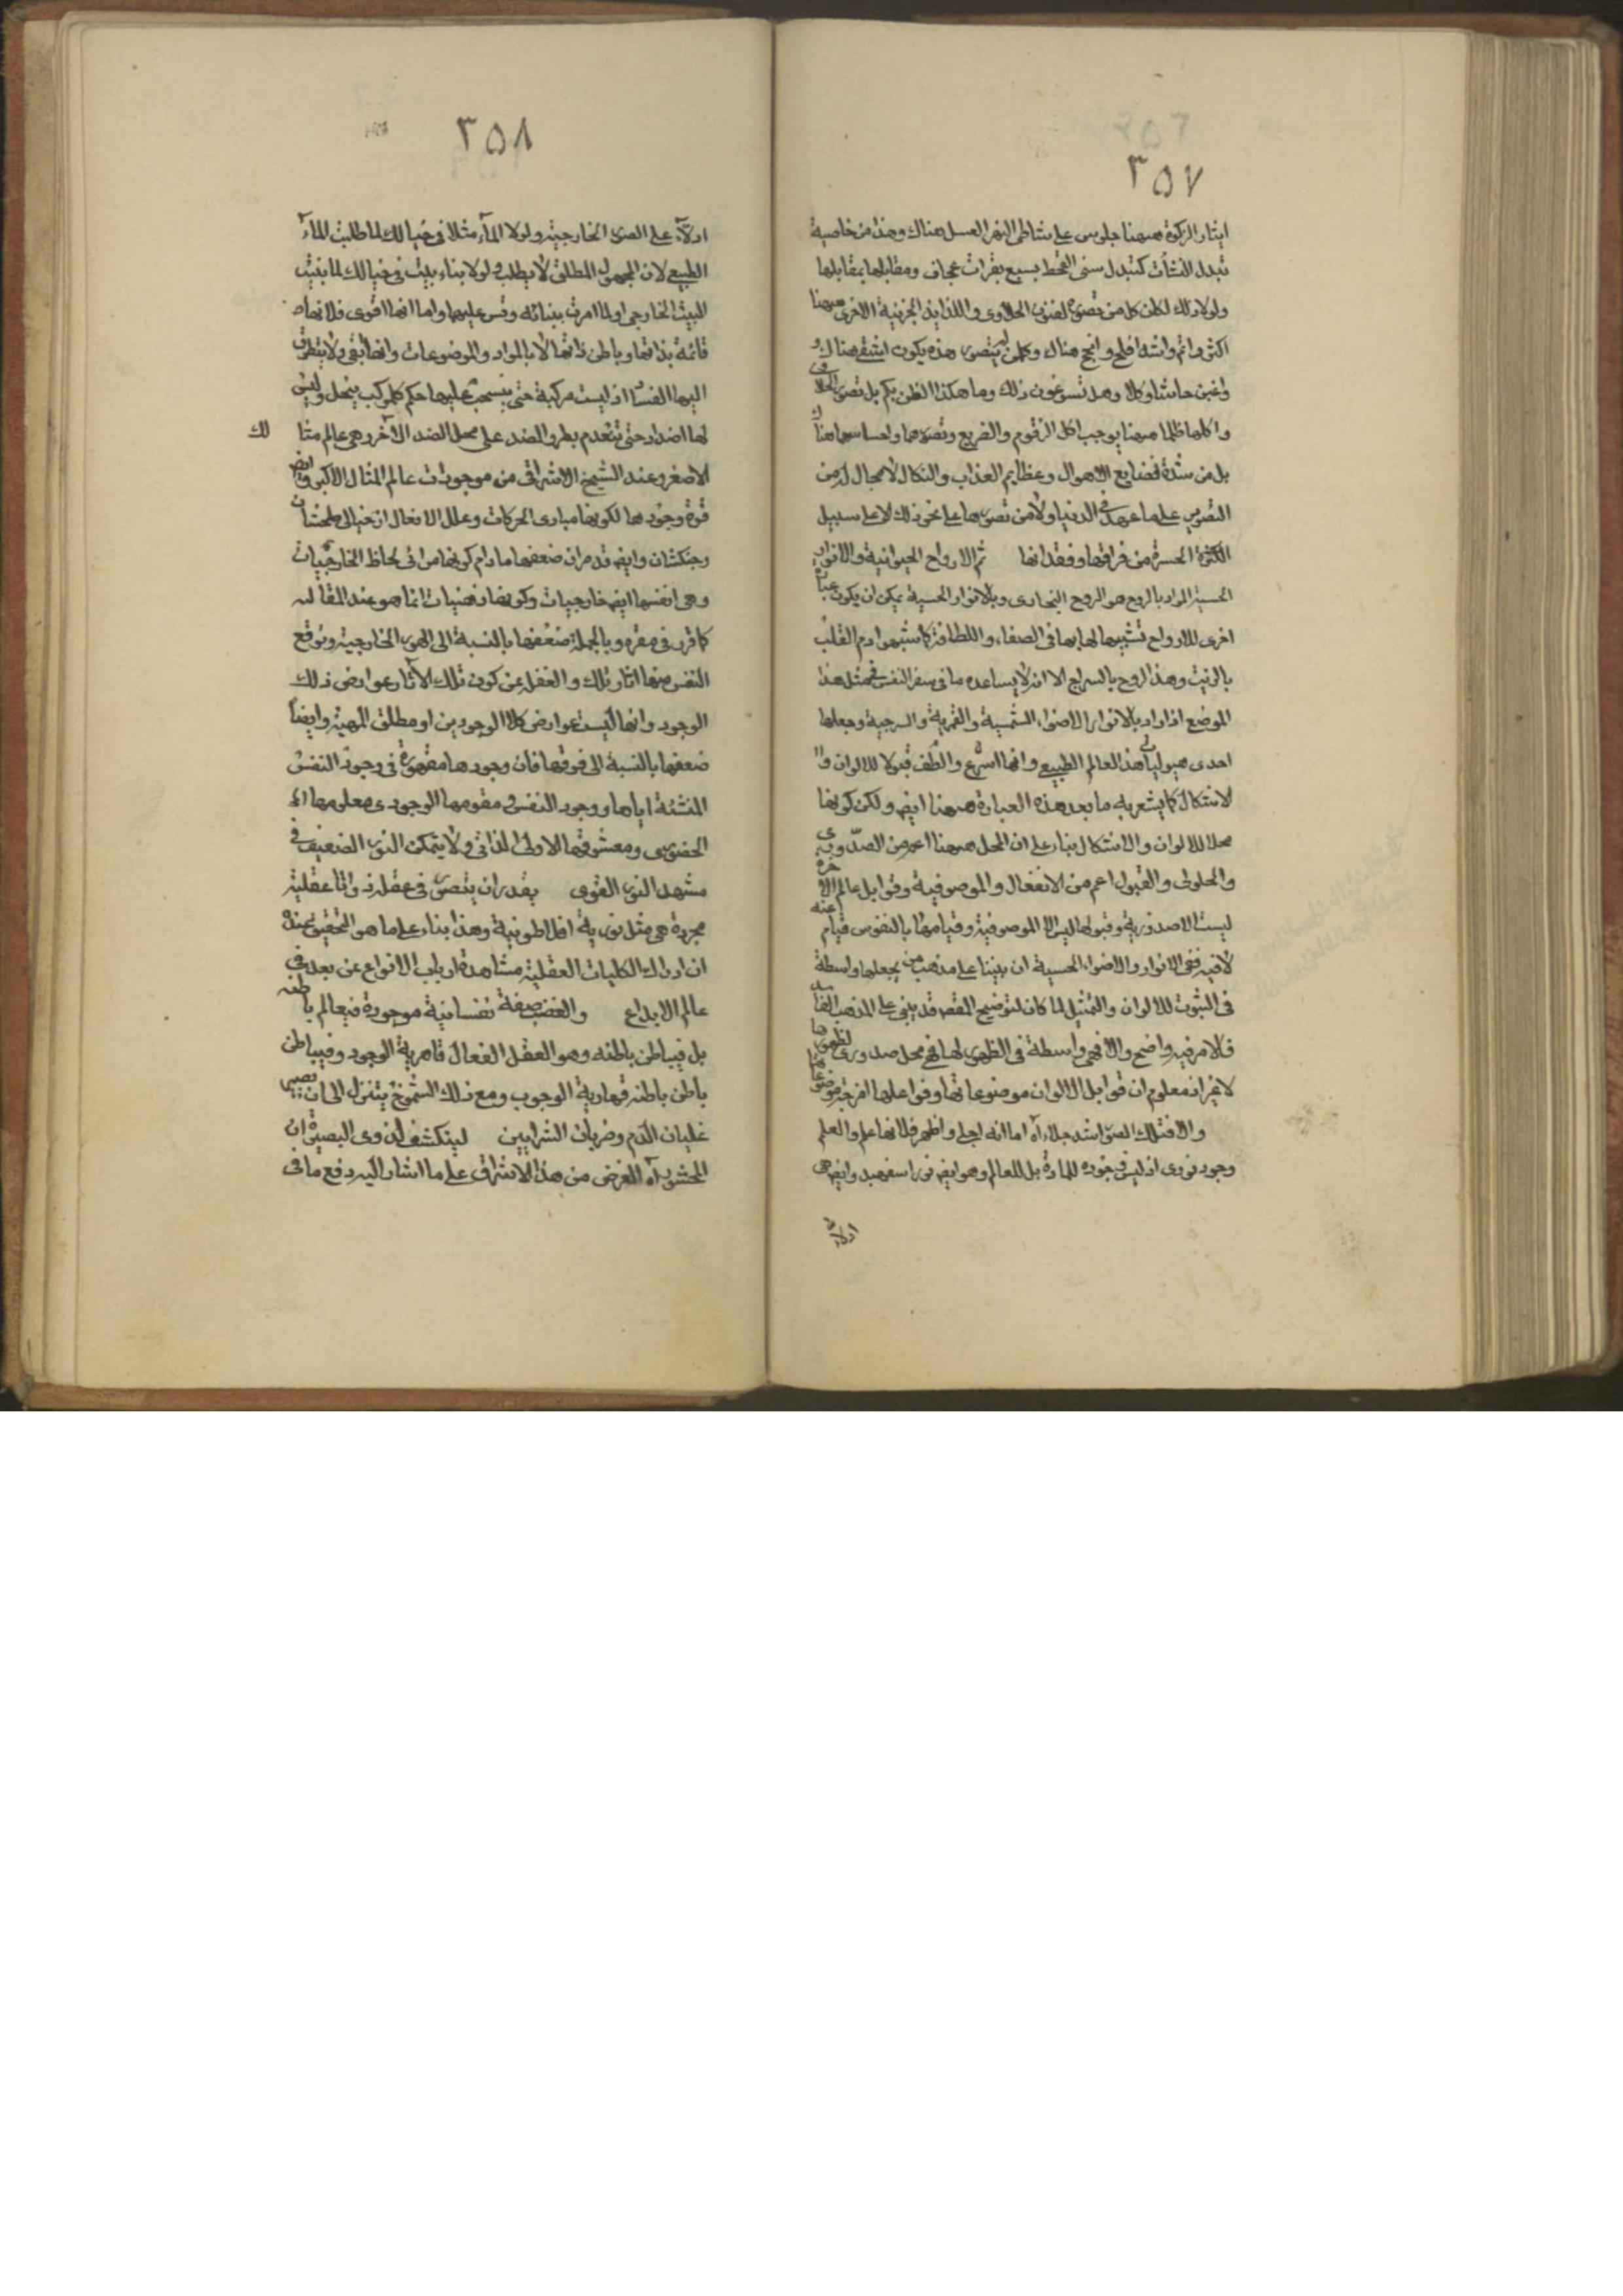 ٣٥٧
ايثار الزكوة ههنا جلوس على شاطئ النهر العسل هناك وهذا من خاصية
تبدل النشأت كتبدل سنى القحط بسبع بقرات عجاف ومقابلها بمقابلها
ولولا ذلك لكان كل من تصور لفنون الحلاوى واللذايذ الجزئية الاخرى ههنا
اكثر واتم واشد افلح وانجح هناك وكل من لم يتصور هذه يكون اشقى هناك و
واغبن حاشا وكلا وهل تسوغون ذلك وما هكذا الظن بكم بل تصور الحلاوى
واكلها ظلما ههنا يوجب اكل الزقوم والضريع وتصورهما واحساسهما هناك
بل من شدة فضايع الاهوال وعظايم العذاب والنكال لا مجال له من
التصوير على ما عهد فى الدنيا ولا من تصورها على نحو ذلك الا على سبيل
الكثرة الحسرة من فراقها وفقدانها ثم الارواح الحيوانية والانوار
الحسية المراد بالروح هو الروح البخارى وبالانوار الحسية يمكن ان يكون عبارة
اخرى للارواح تشبيها لها بها فى الصفاء واللطافة كما شبهوا دم القلب
بالزيت وهذا الروح بالسراج الا انه لا يساعده ما فى سفر النفس فى مثل هذا
الموضع اذ اراد بالانوار الاضواء الشمسية والقمرية والسرجية وجعلها
احدى هيوليات هذا العالم الطبيعى وانها اسرع والطف قبولا للالوان و
الاشكال كما يشعر به ما بعد هذه العبارة ههنا ايضا ولكن كونها
محلا للالوان والاشكال بناء على ان المحل ههنا اعم من الصدورى
والحلولى والقبول اعم من الانفعال والموصوفية وقوابل عالم الاخرة
ليست الا صدورية وقبولها ليس الا الموصوفية وقيامها بالنفوس قيام عنه
لا فيه ففى الانوار والاضواء الحسية ان بنينا على مذهب من يجعلها واسطة
فى الثبوت للالوان والتمثيل لما كان لتوضيح المقصد قد يبنى على المذهب الفاسد
فالامر فيه واضح والا فهى واسطة فى الظهور لها فهى محل صدورى لظهورها
لا غير اذ معلوم ان قوابل الالوان موضوعاتها وفواعلها امزجة موضوعاتها
والا فتلك الصور اشد جلاء اه اما انه اجلى واظهر فلانها علم والعلم
وجود نورى اذ ليس وجوده للمادة بل للعالم وهو ايضا نور اسفهبد وايضا هى
ادلاء
٣٥٨
ادلاء على الصور الخارجية ولولا الماء مثلا فى خيالك لما طلبت الماء
الطبيعى لان المجهول المطلق لا يطلب ولولا بناء بيت فى خيالك لما بنيت
البيت الخارجى او لما امرت ببنائه وقس عليهما واما انها اقوى فلانها
قائمة بذاتها وباطن ذاتها لا بالمواد والموضوعات وانها ابقى ولا يتطرق
اليها الفساد اذ ليست مركبة حتى ينسحب عليها حكم كل مركب ينحل وليس
لها اضداد حتى تنعدم بطرو الضد على محل الضد الاخر وهى عالم مثالك
الاصغر وعند الشيخ الاشراقى من موجودات عالم المثال الاكبر وايضا
قوة وجودها لكونها مبادى الحركات وعلل الافعال از خيالى صلحشان
وجنگشان وايضا قد مر ان ضعفها ما دام كونها مرائى لحاظ الخارجيات
وهى انفسها ايضا خارجيات وكونها ذهنيات انما هو عند المقائسة
كما قرر فى مقره وبالجملة ضعفها بالنسبة الى الصور الخارجية وتوقع
النفس منها اثار تلك والغفلة عن كون تلك الاثار عوارض ذلك
الوجود وانها ليست عوارض كلا الوجودين او مطلق المهية وايضا
ضعفها بالنسبة الى فوقها فان وجودها مقهور فى وجود النفس
المنشئة اياها ووجود النفس مقومها الوجودى ومعلومها
الحضورى ومعشوقها الاولى الذاتى ولا يتمكن النور الضعيف فى
مشهد النور القوى يقدر ان يتصور فى عقله ذواتا عقلية
مجردة هى مثل نورية افلاطونية وهذا بناء على ما هو التحقيق عنده
ان ادراك الكليات العقلية مشاهدة ارباب الانواع عن بعد فى
عالم الابداع والغضب صفة نفسانية موجودة فى عالم باطنه
بل فى باطن باطنه وهو العقل الفعال قاهرية الوجود وفى باطن
باطن باطنه قهارية الوجوب ومع ذلك الشموخ يتنزل الى ان يصير
غليان الدم وضربان الشرايين لينكشف لذوى البصيرة ان
المحشور اه الغرض من هذا الاشراق على ما اشار اليه دفع ما فى